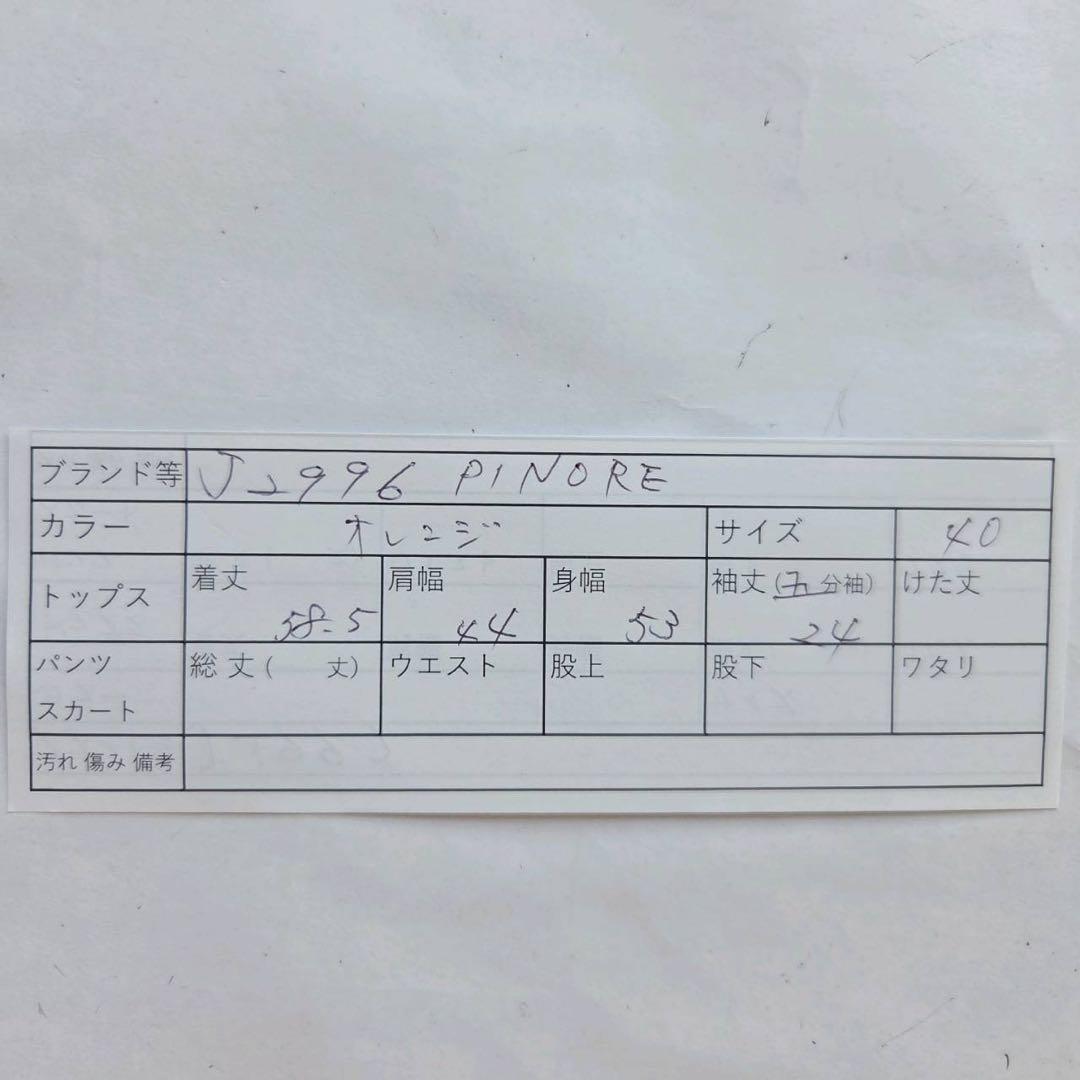 ブランド等 J2996 PINORE
カラー オレンジ サイズ 40
トップス 着丈 58.5 肩幅 44 身幅 53 袖丈(五分袖) 24 けた丈
パンツ スカート 総丈( 丈) ウエスト 股上 股下 ワタリ
汚れ 傷み 備考